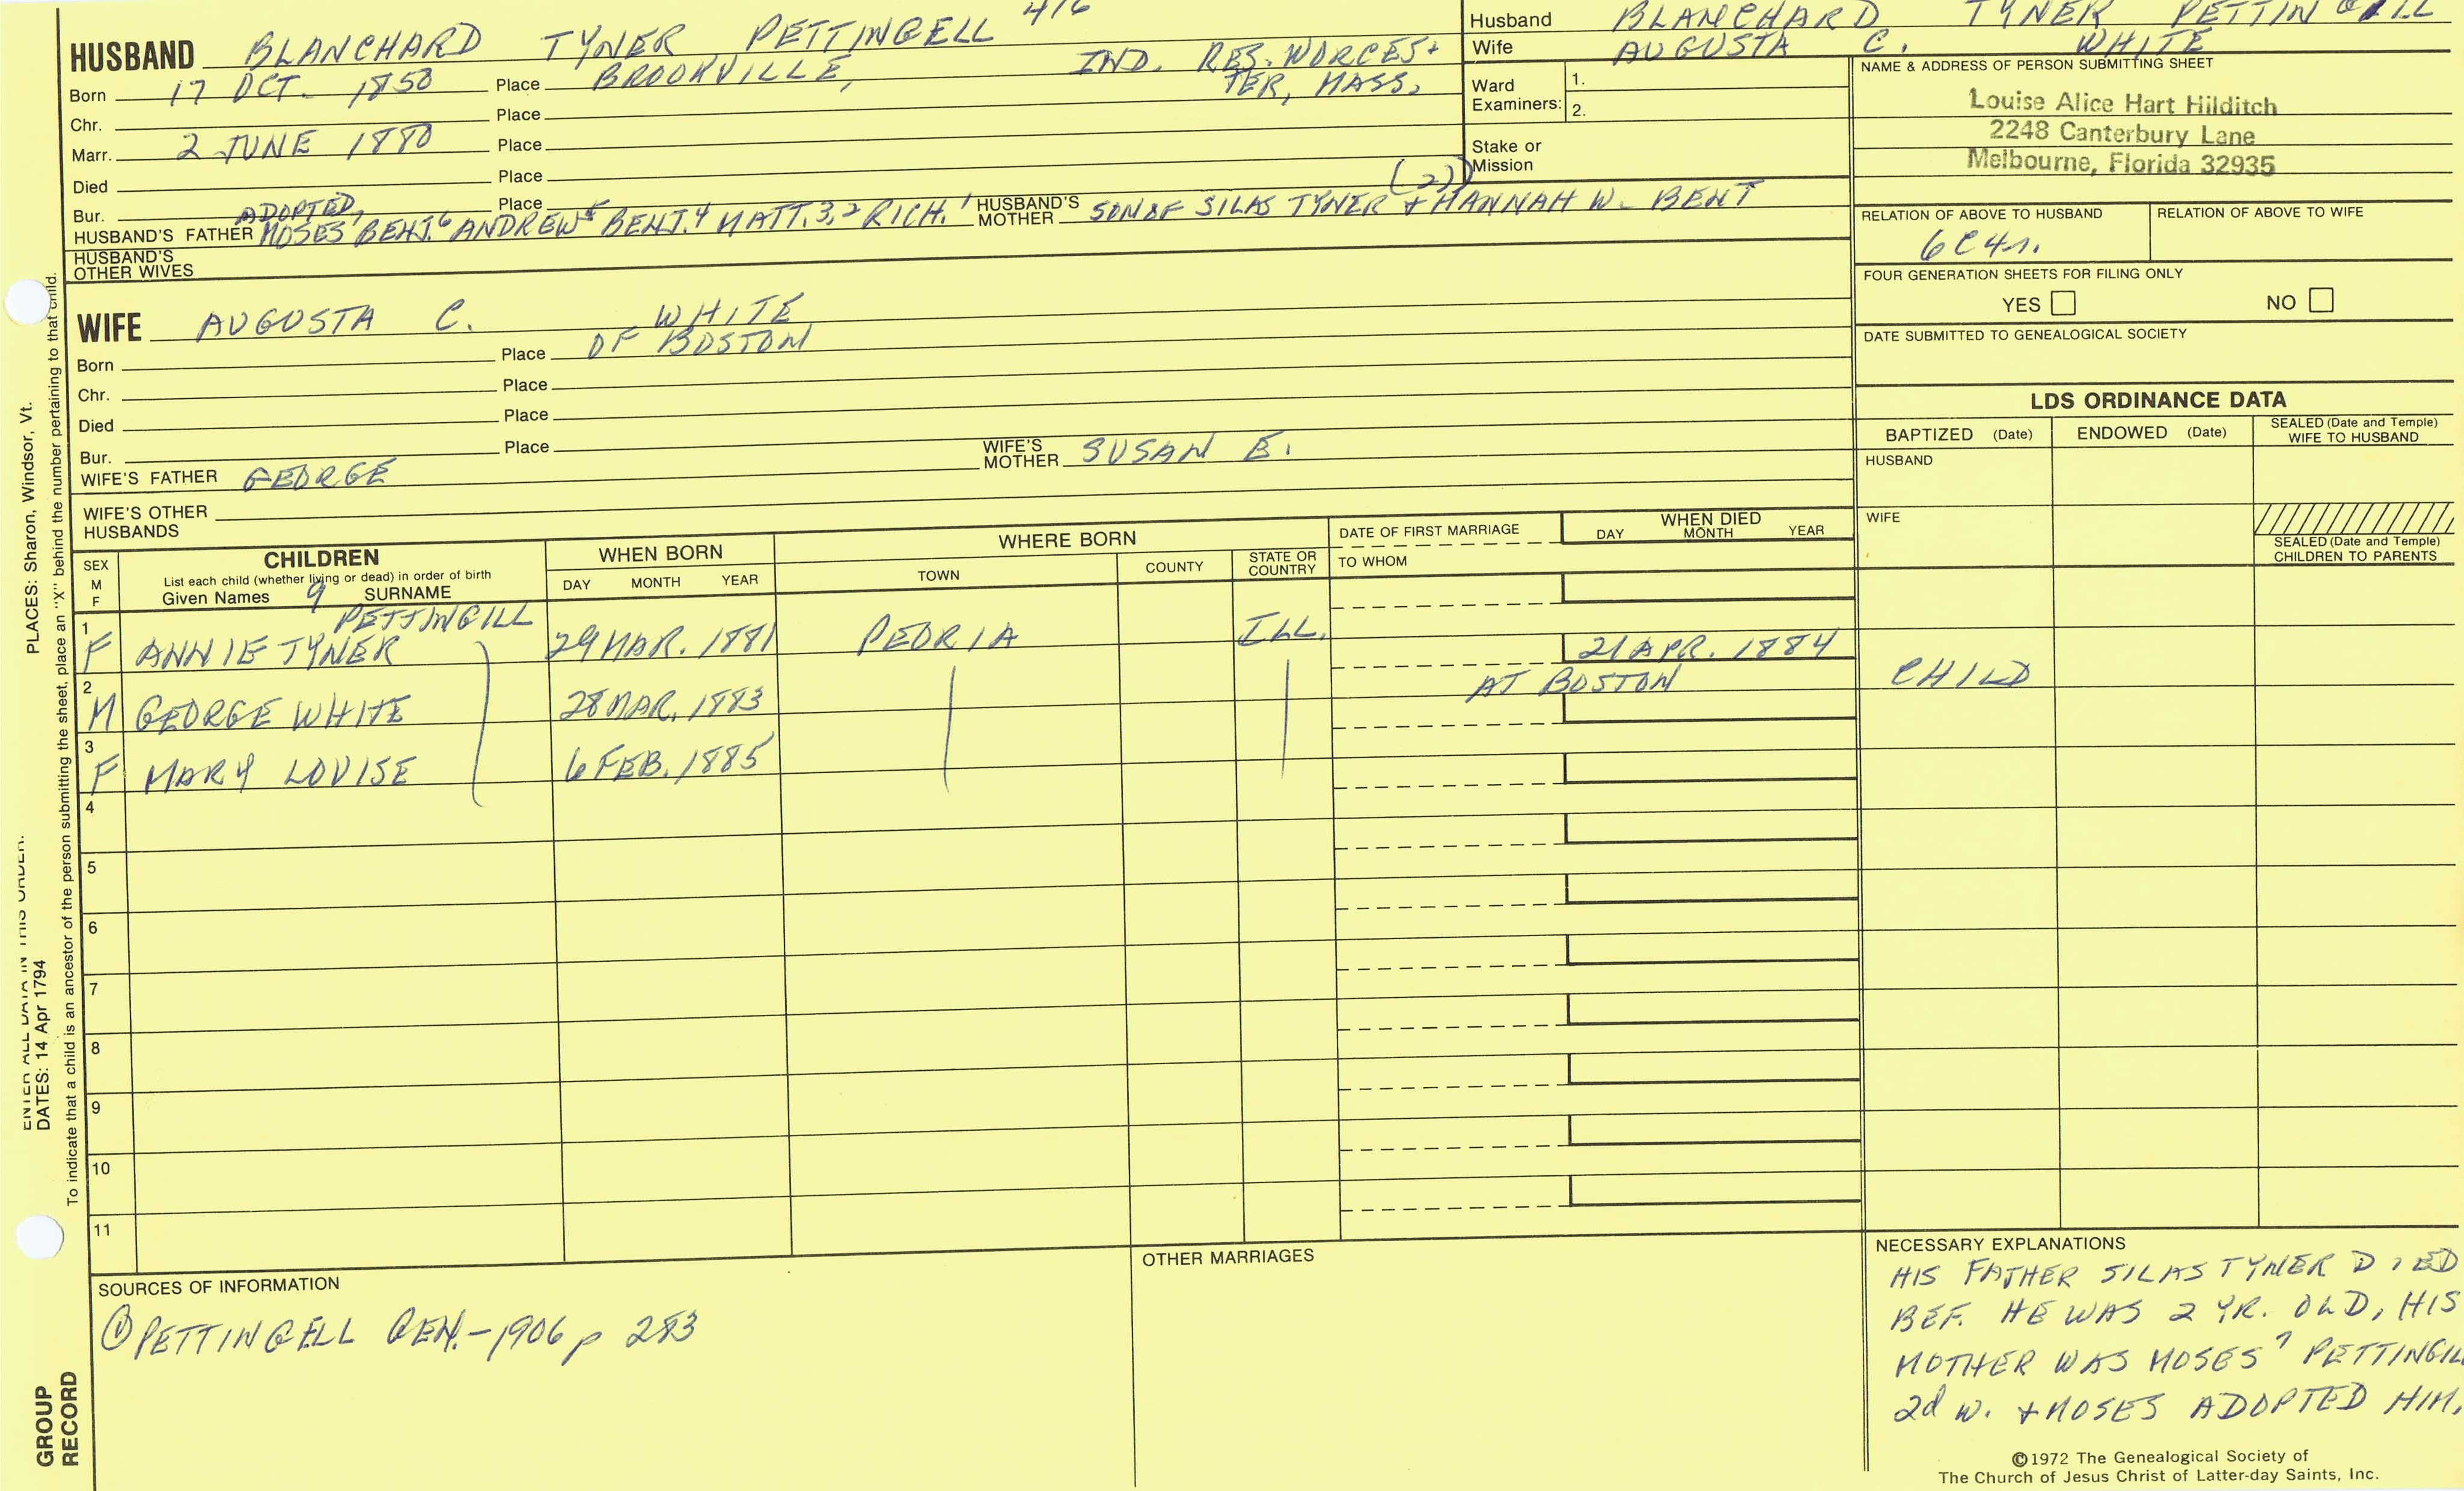 HUSBAND BLANCHARD TYNER PETTINGELL 416
Born 17 OCT. 1850 Place BROOKVILLE, IND. RES. WORCES-
TER, MASS.
Chr. Place
Marr. 2 JUNE 1880 Place
Died Place
Bur. Place
ADOPTED,
HUSBAND'S FATHER MOSES7 BENJ.6 ANDREW5 BENJ.4 MATT.3,2 RICH.1 HUSBAND'S MOTHER SON OF SILAS TYNER + (2) HANNAH W. BENT
HUSBAND'S OTHER WIVES
WIFE AUGUSTA C. WHITE
Born Place OF BOSTON
Chr. Place
Died Place
Bur. Place
WIFE'S FATHER GEORGE WIFE'S MOTHER SUSAN E.
WIFE'S OTHER HUSBANDS
Husband BLANCHARD TYNER PETTINGELL
Wife AUGUSTA C. WHITE
Ward Examiners: 1.
2.
Stake or Mission
NAME & ADDRESS OF PERSON SUBMITTING SHEET
Louise Alice Hart Hilditch
2248 Canterbury Lane
Melbourne, Florida 32935
RELATION OF ABOVE TO HUSBAND RELATION OF ABOVE TO WIFE
6C4r.
FOUR GENERATION SHEETS FOR FILING ONLY
YES NO
DATE SUBMITTED TO GENEALOGICAL SOCIETY
LDS ORDINANCE DATA
BAPTIZED (Date) ENDOWED (Date) SEALED (Date and Temple) WIFE TO HUSBAND
HUSBAND
WIFE
SEALED (Date and Temple) CHILDREN TO PARENTS
SEX M F
CHILDREN
List each child (whether living or dead) in order of birth
Given Names 9 SURNAME
WHEN BORN
DAY MONTH YEAR
WHERE BORN
TOWN COUNTY STATE OR COUNTRY
DATE OF FIRST MARRIAGE
TO WHOM
WHEN DIED
DAY MONTH YEAR
PETTINGILL
1 F ANNIE TYNER 29 MAR. 1881 PEORIA ILL. 21 APR. 1884
AT BOSTON CHILD
2 M GEORGE WHITE 28 MAR. 1883
3 F MARY LOUISE 6 FEB. 1885
4
5
6
7
8
9
10
11
SOURCES OF INFORMATION
① PETTINGELL GEN.-1906 p 283
OTHER MARRIAGES
NECESSARY EXPLANATIONS
HIS FATHER SILAS TYNER DIED
BEF. HE WAS 2 YR. OLD, HIS
MOTHER WAS MOSES7 PETTINGIL
2d W. + MOSES ADOPTED HIM.
©1972 The Genealogical Society of
The Church of Jesus Christ of Latter-day Saints, Inc.
PLACES: Sharon, Windsor, Vt.
ENTER ALL DATA IN THIS ORDER.
DATES: 14 Apr 1794
To indicate that a child is an ancestor of the person submitting the sheet, place an "X" behind the number pertaining to that child.
GROUP
RECORD